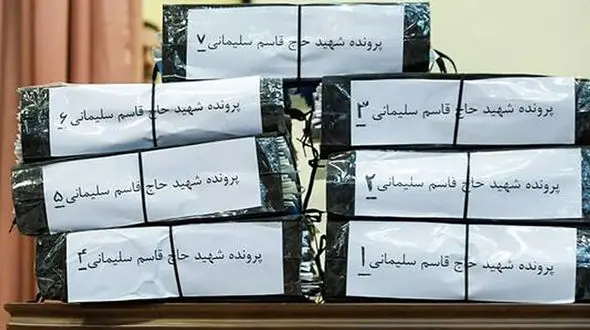 پرونده شهید حاج قاسم سلیمانی ۷
پرونده شهید حاج قاسم سلیمانی ۳
پرونده شهید حاج قاسم سلیمانی ۶
پرونده شهید حاج قاسم سلیمانی ۲
پرونده شهید حاج قاسم سلیمانی ۵
پرونده شهید حاج قاسم سلیمانی ۱
پرونده شهید حاج قاسم سلیمانی ۴